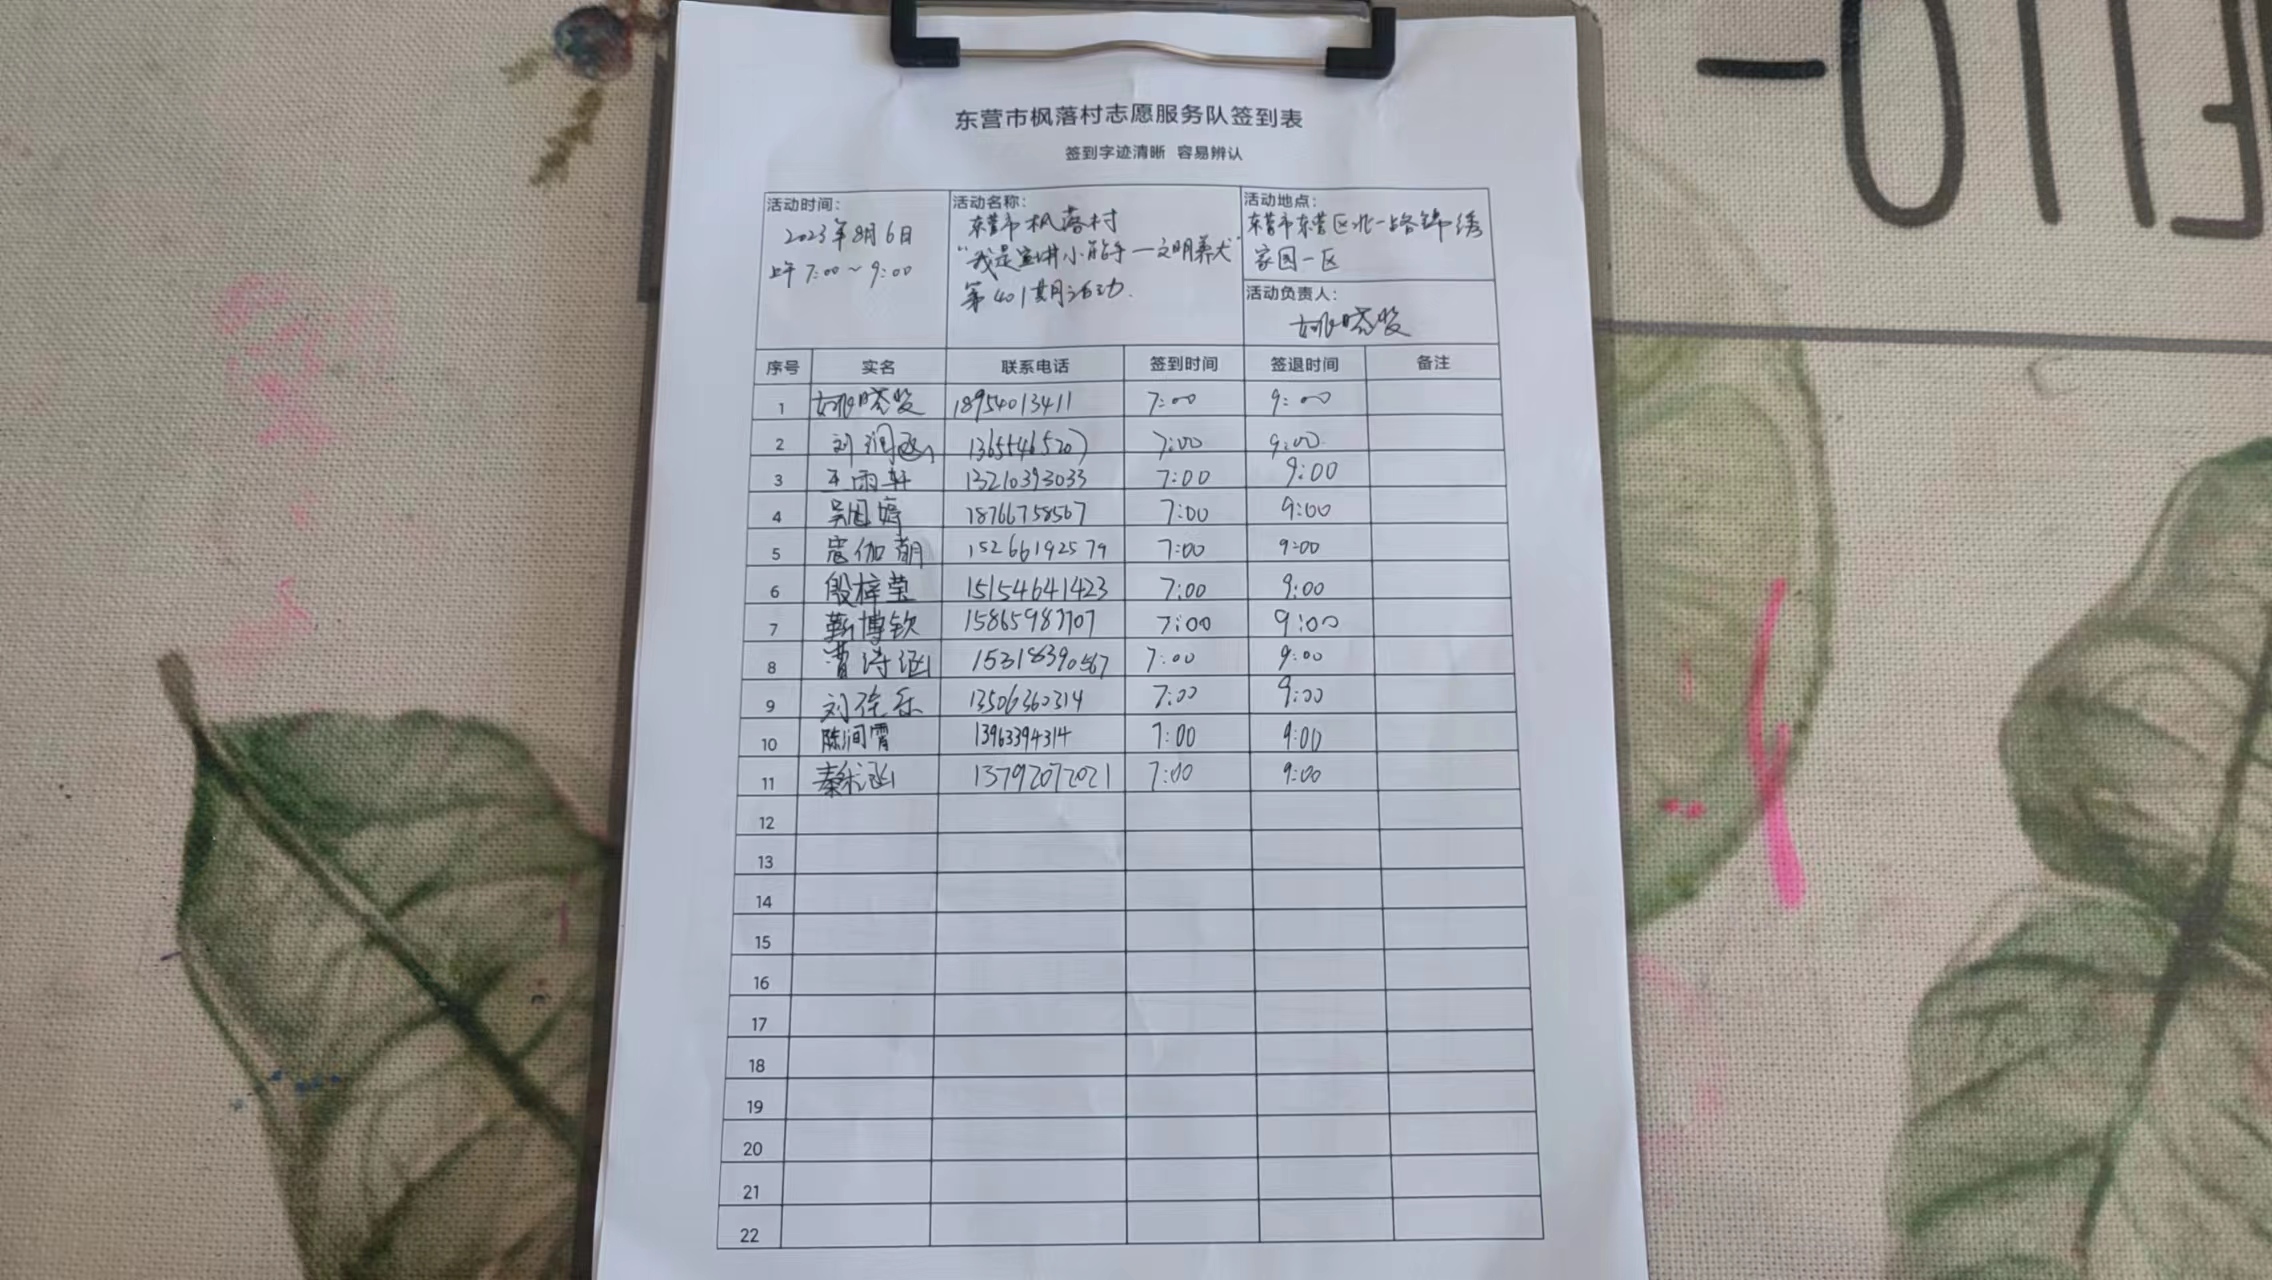 ELLO-
东营市枫落村志愿服务队签到表
签到字迹清晰 容易辨认
活动时间: 2023年8月6日 上午7:00~9:00
活动名称: 东营市枫落村
"我是宣讲小能手—文明养犬"
第401期活动.
活动地点: 东营市东营区北一路锦绣
家园一区
活动负责人:
姚晓
序号 实名 联系电话 签到时间 签退时间 备注
1 姚晓 18954013411 7:00 9:00
2 刘润涵 13655465207 7:00 9:00
3 王雨轩 13210393033 7:00 9:00
4 吴恩婷 18766758567 7:00 9:00
5 寇伽朝 15266192579 7:00 9:00
6 殷梓莹 15154641423 7:00 9:00
7 靳博钦 15865987707 7:00 9:00
8 曹诗涵 15318390567 7:00 9:00
9 刘佳乐 13506360314 7:00 9:00
10 陈润霄 13963394314 7:00 9:00
11 秦涵 13792072021 7:00 9:00
12
13
14
15
16
17
18
19
20
21
22